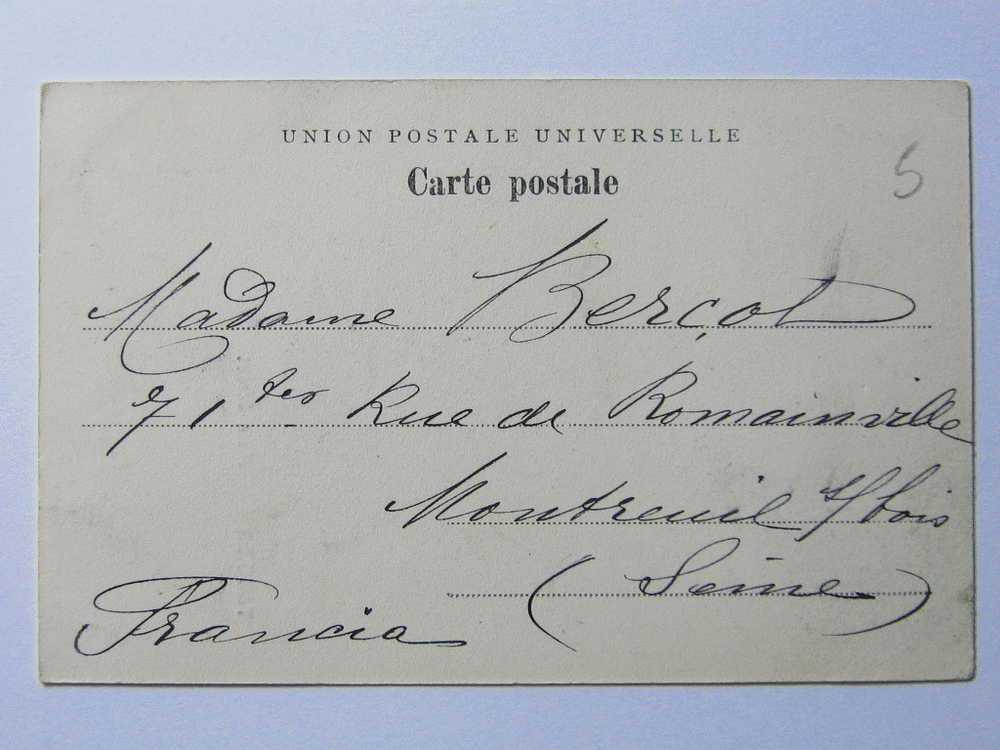 UNION POSTALE UNIVERSELLE
Carte postale
5
Madame Berçot
71 ter Rue de Romainville
Montreuil s/bois
(Seine)
Francia